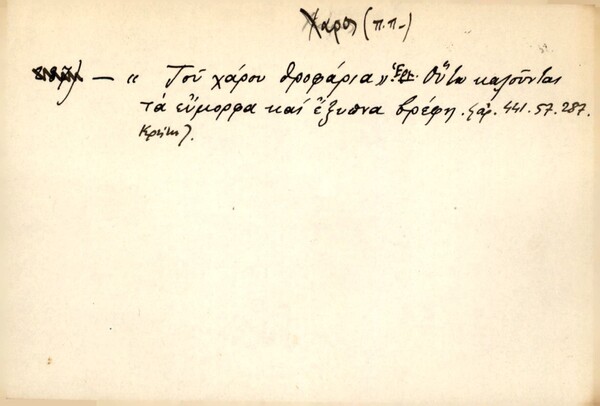 Χάρος (π.π.-)
— "Τοῦ χάρου θροφάρια" Ἑρμ. Οὕτω καλοῦνται
τὰ εὔμορφα καὶ ἔξυπνα βρέφη. (ἀρ. 441. 57. 287.
Κρήτη).